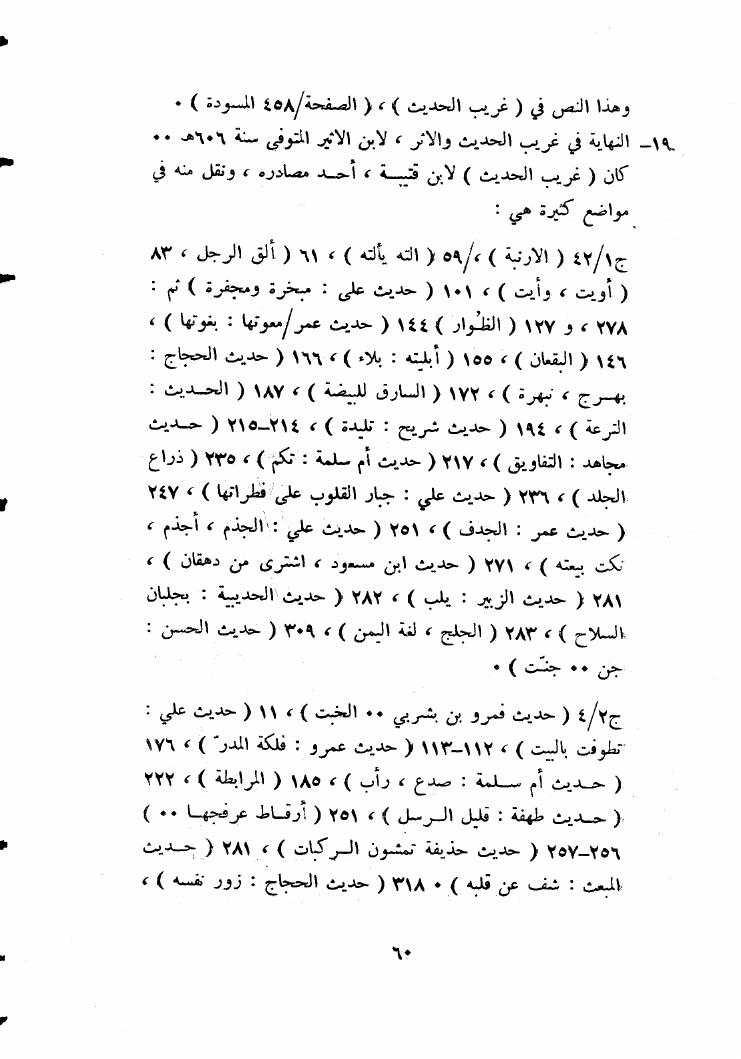 وهذا النص في ( غريب الحديث ) ، ( الصفحة/٤٥٨ المسودة ) ٠
١٩ــ النهاية في غريب الحديث والاثر ، لابن الاثير المتوفى سنة ٦٠٦هـ ٠٠
كان ( غريب الحديث ) لابن قتيبة ، أحد مصادره ، ونقل منه في
مواضع كثيرة هي :
ج٤٢/١ ( الارنبة ) ، /٥٩ ( الته يألته ) ، ٦١ ( ألق الرجل ، ٨٣
( أويت ، وأيت ) ، ١٠١ ( حديث على : مبخرة ومجفرة ) ثم :
٢٧٨ ، و ١٢٧ ( الظوار ) ١٤٤ ( حديث عمر/معوتها : بغوتها ) ،
١٤٦ ( البقعان ) ، ١٥٥ ( أبليته : بلاء ) ، ١٦٦ ( حديث الحجاج :
بهرج ، نبهرة ) ، ١٧٢ ( السارق للبيضة ) ، ١٨٧ ( الحديث :
الترعة ) ، ١٩٤ ( حديث شريح : تليدة ) ، ٢١٤ــ٢١٥ ( حديث
مجاهد : التفاويق ) ، ٢١٧ ( حديث أم سلمة : تكم ) ، ٢٣٥ ( ذراع
الجلد ) ، ٢٣٦ ( حديث علي : جبار القلوب على فطراتها ) ، ٢٤٧
( حديث عمر : الجدف ) ، ٢٥١ ( حديث علي : الجذم ، أجذم ،
نكت بيعته ) ، ٢٧١ ( حديث ابن مسعود ، اشترى من دهقان ) ،
٢٨١ ( حديث الزبير : يلب ) ، ٢٨٢ ( حديث الحديبية : بجلبان
السلاح ) ، ٢٨٣ ( الجلج ، لغة اليمن ) ، ٣٠٩ ( حديث الحسن :
جن ٠٠ جنّت ) ٠
ج٤/٢ ( حديث فمرو بن يثربي ٠٠ الخبت ) ، ١١ ( حديث علي :
تطوفت بالبيت ) ، ١١٢ــ١١٣ ( حديث عمرو : فلكة المدر ) ، ١٧٦
( حديث أم سلمة : صدع ، رأب ) ، ١٨٥ ( المرابطة ) ، ٢٢٢
( حديث طهفة : قليل الرسل ) ، ٢٥١ ( أرقاط عرفجها ٠٠ )
٢٥٦ــ٢٥٧ ( حديث حذيفة تمشون الركبات ) ، ٢٨١ ( حديث
المبعث : شف عن قلبه ) ٠ ٣١٨ ( حديث الحجاج : زور نفسه ) ،
٦٠